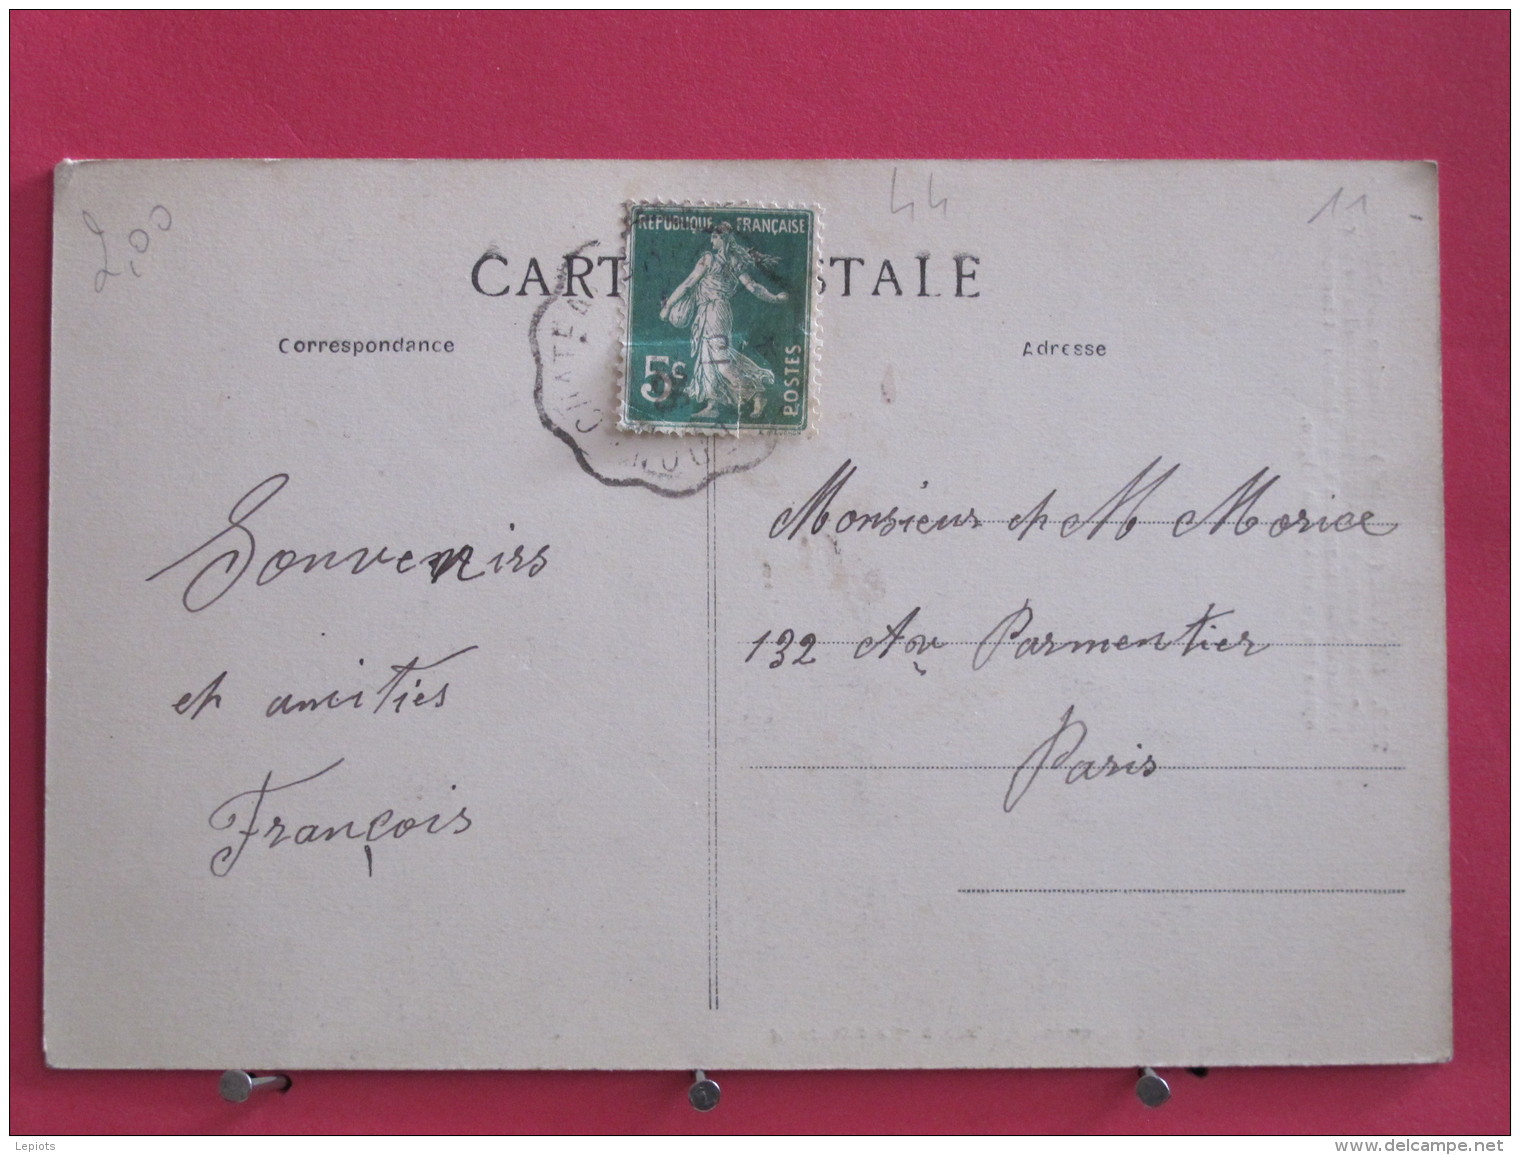 2,00
44
11
CARTE POSTALE
REPUBLIQUE FRANÇAISE
5c
POSTES
CHATEAU
Correspondance
Adresse
Souvenirs
et amitiés
François
Monsieur et M Morice
132 Av Parmentier
Paris
Lepiots
www.delcampe.net